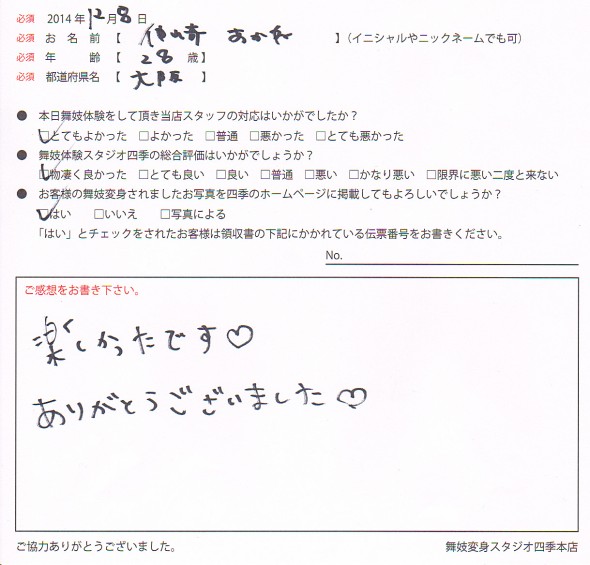 必須 2014年12月8日
必須 お名前【 あかね 】（イニシャルやニックネームでも可）
必須 年齢【 28 歳】
必須 都道府県名【 大阪 】
● 本日舞妓体験をして頂き当店スタッフの対応はいかがでしたか？
☑とてもよかった □よかった □普通 □悪かった □とても悪かった
● 舞妓体験スタジオ四季の総合評価はいかがでしょうか？
☑物凄く良かった □とても良い □良い □普通 □悪い □かなり悪い □限界に悪い二度と来ない
● お客様の舞妓変身されましたお写真を四季のホームページに掲載してもよろしいでしょうか？
☑はい □いいえ □写真による
「はい」とチェックをされたお客様は領収書の下記にかかれている伝票番号をお書きください。
No.
ご感想をお書き下さい。
楽しかったです♡
ありがとうございました♡
ご協力ありがとうございました。
舞妓変身スタジオ四季本店